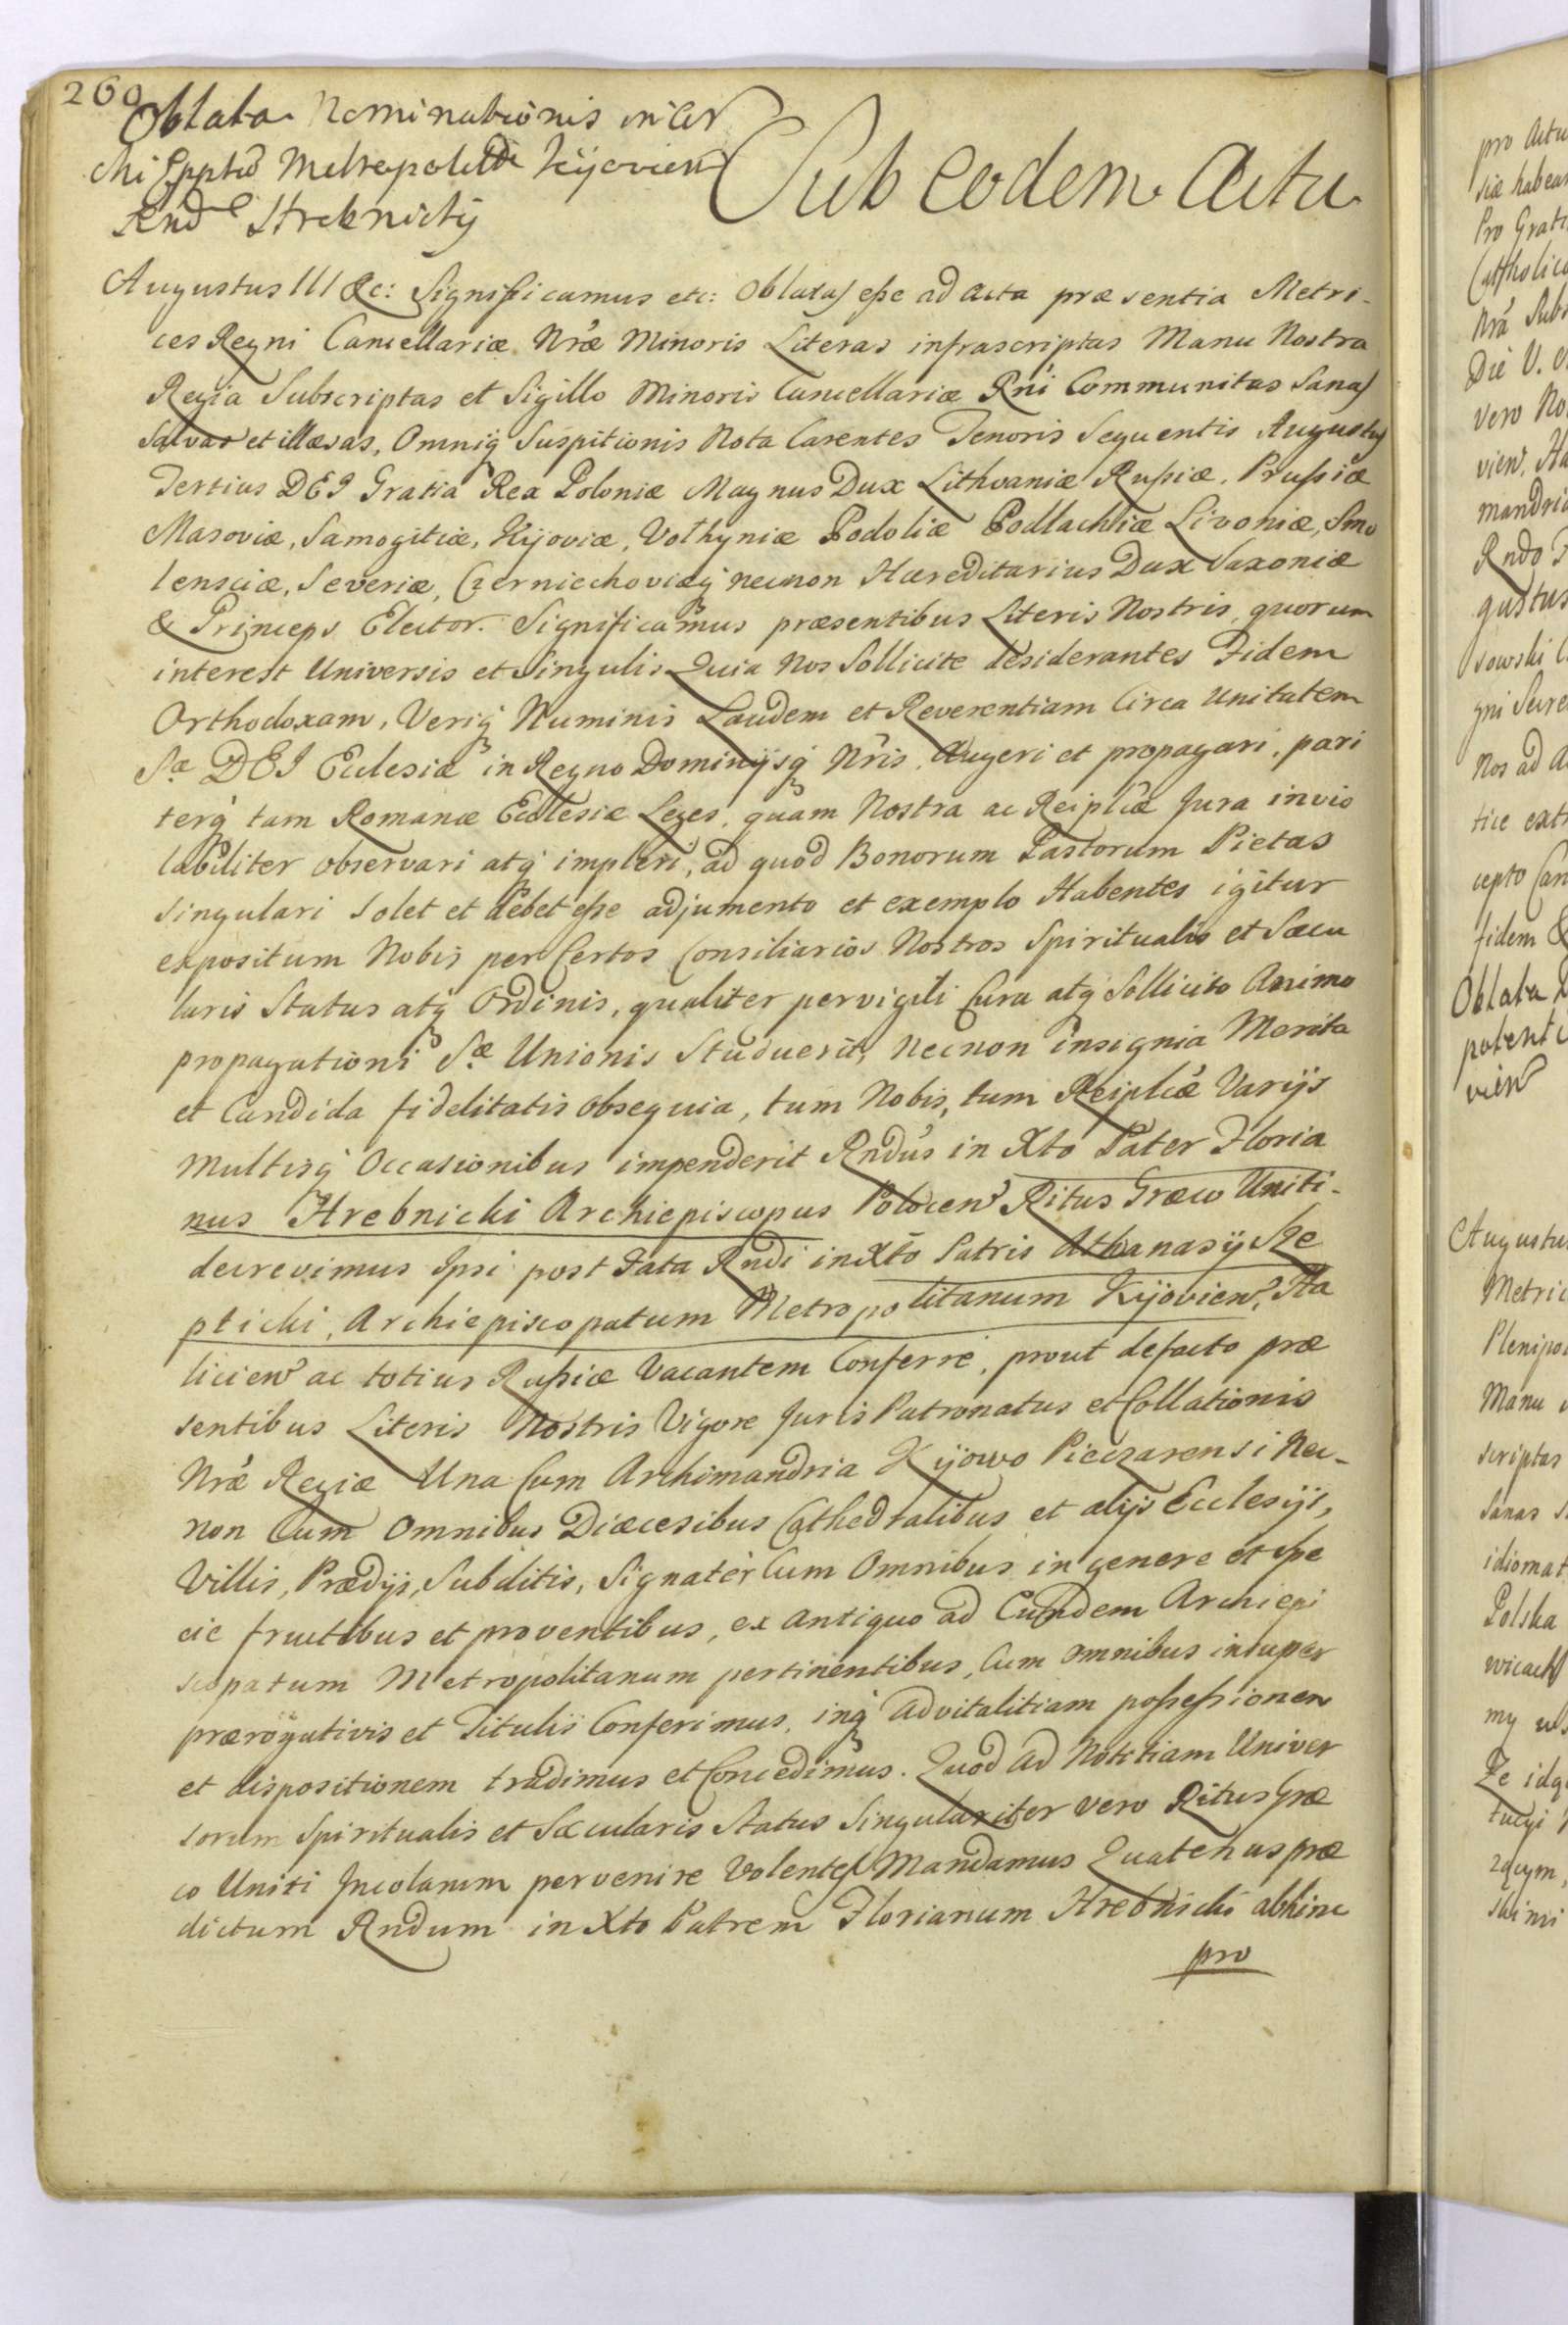 260
Oblata Nominationis in Ar
chi Epptũ Metropolit Kijovien
Rnd Hrebnicky
Sub Eodem Actu
Augustus III &c: Significamus etc: Oblatas eße ad Acta præsentia Metri-
ces Regni Cancellariæ Nræ Minoris Literas infrascriptas Manu Nostra
Regia Subscriptas et Sigillo Minoris Cancellariæ Rni Communitas Sanas
Salvas et illæsas, Omniq Suspitionis Nota Carentes Tenoris Sequentis Augustus
Tertius DEI Gratia Rex Poloniæ Magnus Dux Lithvaniæ Rußiæ, Prußiæ
Masoviæ, Samogitiæ, Kijoviæ, Volhyniæ Podoliæ Podlachiæ Livoniæ, Smo
lensciæ, Severiæ, Czerniechoviæq necnon Hæreditarius Dux Saxoniæ
& Princeps Elector. Significamus præsentibus Literis Nostris, quorum
interest Universis et Singulis Quia Nos Sollicite desiderantes Fidem
Orthodoxam, Veriq Numinis Laudem et Reverentiam Circa Unitatem
Sæ DEI Ecclesiæ in Regno Dominijsq Nris, Augeri et propagari, pari
terq tam Romanæ Ecclesiæ Leges, quam Nostra ac Reiplicæ Jura invio
labiliter observari atq impleri, ad quod Bonorum Pastorum Pietas
singulari solet et debet eße adjumento et exemplo Habentes igitur
expositum Nobis per Certos Consiliarios Nostros Spiritualis et Sæcu
laris Status atq Ordinis, qualiter pervigili Cura atq Sollicito Animo
propagationi Sæ Unionis Studuerit, necnon insignia Merita
et Candida fidelitatis obsequia, tum Nobis, tum Reiplicæ Varijs
Multisq Occasionibus impenderit Rndus in Xto Pater Floria
nus Hrebnicki Archiepiscopus Polocen Ritus Græco Uniti-
decrevimus Ipsi post Fata Rndi in Xto Patris Athanasij Sze
pticki, Archiepiscopatum Metropolitanum Kijovien, Ha
licien ac totius Rußiæ Vacantem Conferre, prout defacto præ
sentibus Literis Nostris Vigore Juris Patronatus et Collationis
Nræ Regiæ Una Cum Archimandria Kijowo Pieczarensi Nec-
non Cum Omnibus Diœcesibus Cathedralibus et alijs Ecclesijs,
Villis, Prædijs, Subditis, Signater Cum Omnibus in genere et spe
cie fructibus et proventibus, ex antiquo ad Eundem Archiepi
scopatum Metropolitanum pertinentibus, Cum omnibus insuper
prærogativis et Titulis Conferimus, inq advitalitiam poßeßionem
et dispositionem tradimus et Concedimus. Quod ad Notitiam Univer
sorum Spiritualis et Sæcularis Status Singulariter vero Ritus Græ
co Uniti Incolarum pervenire Volentes Mandamus Quatenus præ
dictum Rndum in Xto Patrem Florianum Hrebnicki abhinc
pro